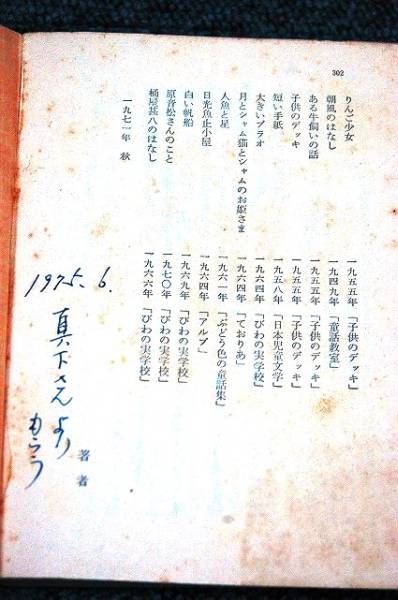 302
りんご少女 一九五五年「子供のデッキ」
朝風のはなし 一九四九年「童話教室」
ある牛飼いの話 一九五五年「子供のデッキ」
子供のデッキ 一九五五年「子供のデッキ」
短い手紙 一九五八年「日本児童文学」
大きいブラオ 一九六四年「びわの実学校」
月とシャム猫とシャムのお姫さま 一九六四年「ておりあ」
人魚と星 一九六一年「ぶどう色の童話集」
日光魚止小屋 一九六四年「アルプ」
白い帆船 一九六九年「びわの実学校」
原音松さんのこと 一九七〇年「びわの実学校」
桶屋甚八のはなし 一九六六年「びわの実学校」
一九七一年 秋
著者
1975.6.
真下さんより
もらう